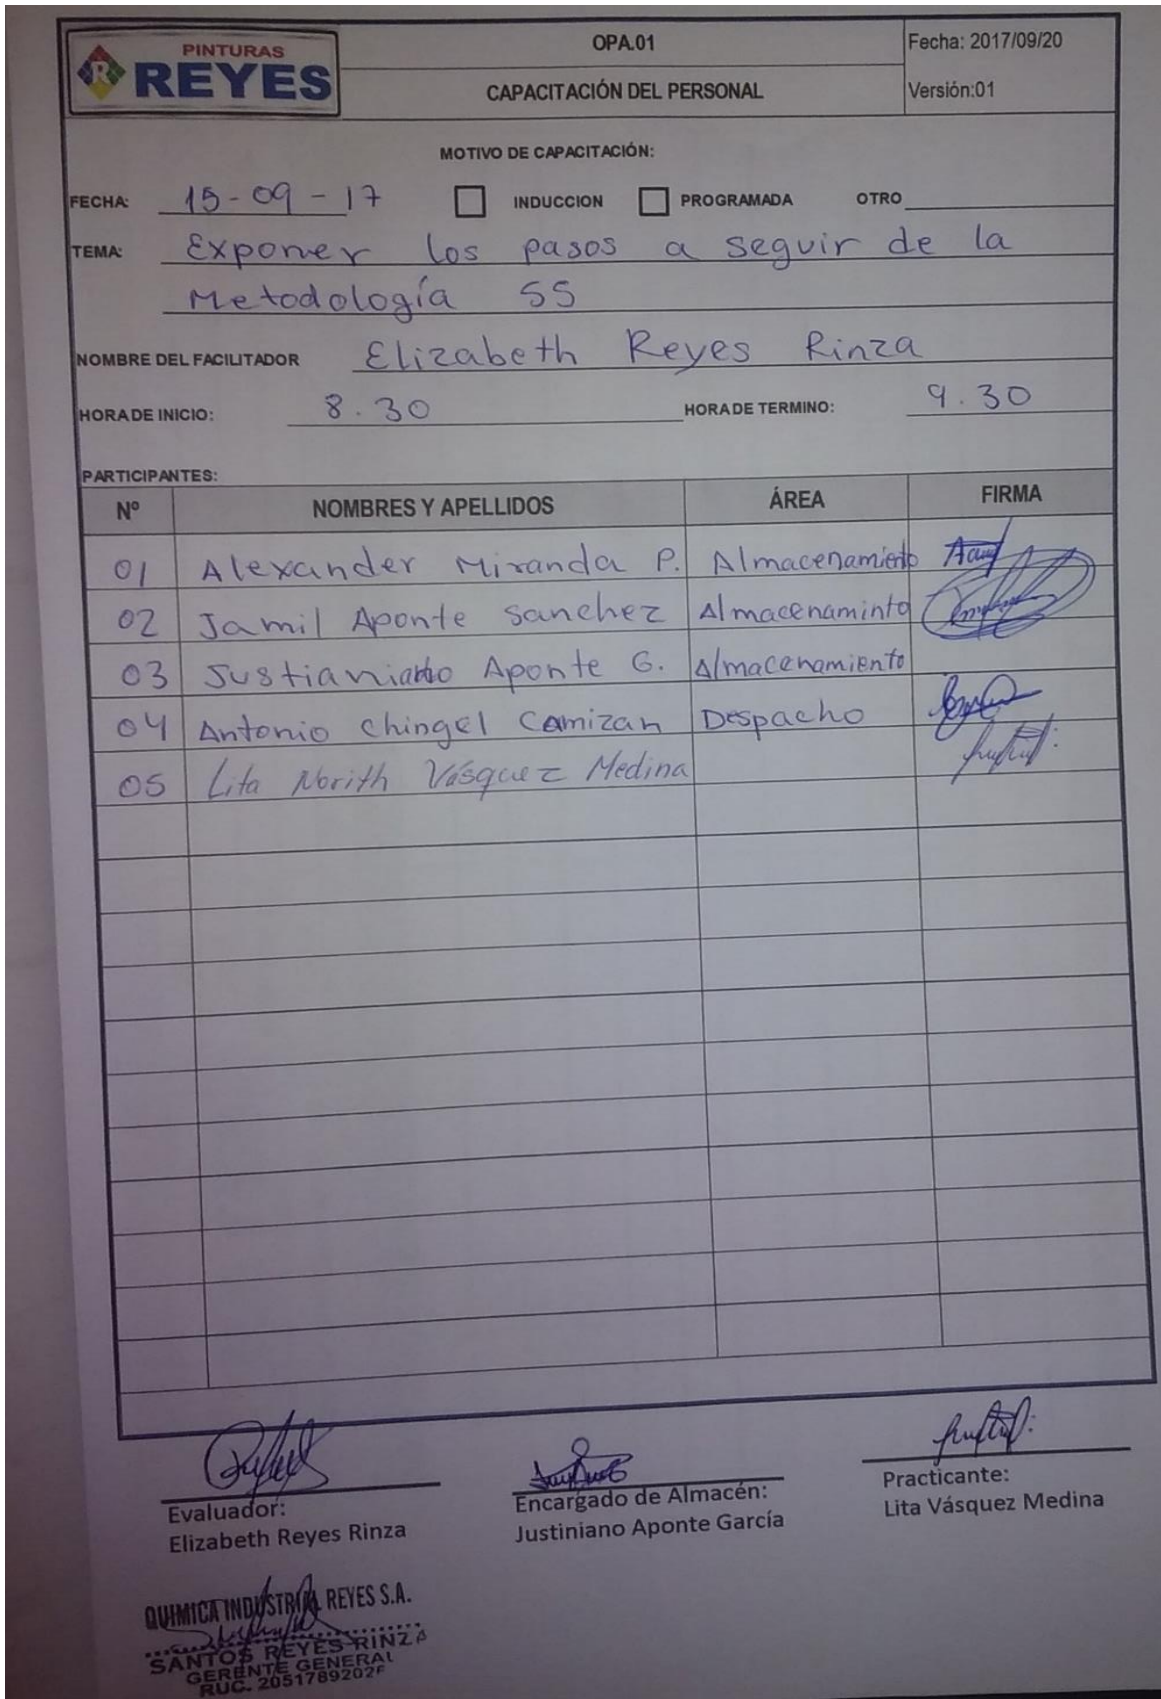 PINTURAS
R REYES
OPA.01
Fecha: 2017/09/20
CAPACITACIÓN DEL PERSONAL
Versión:01
MOTIVO DE CAPACITACIÓN:
FECHA: 15-09-17 INDUCCION PROGRAMADA OTRO
TEMA: Exponer los pasos a seguir de la
Metodología 5S
NOMBRE DEL FACILITADOR Elizabeth Reyes Rinza
HORA DE INICIO: 8.30 HORA DE TERMINO: 9.30
PARTICIPANTES:
Nº NOMBRES Y APELLIDOS ÁREA FIRMA
01 Alexander Miranda P. Almacenamiento
02 Jamil Aponte Sanchez Almacenaminto
03 Aponte G. Almacenamiento
04 Antonio Chingel Camizan Despacho
05 Lita Norith Vásquez Medina
Evaluador:
Elizabeth Reyes Rinza
Encargado de Almacén:
Justiniano Aponte García
Practicante:
Lita Vásquez Medina
QUIMICA INDUSTRIAL REYES S.A.
SANTOS REYES RINZA
GERENTE GENERAL
RUC.